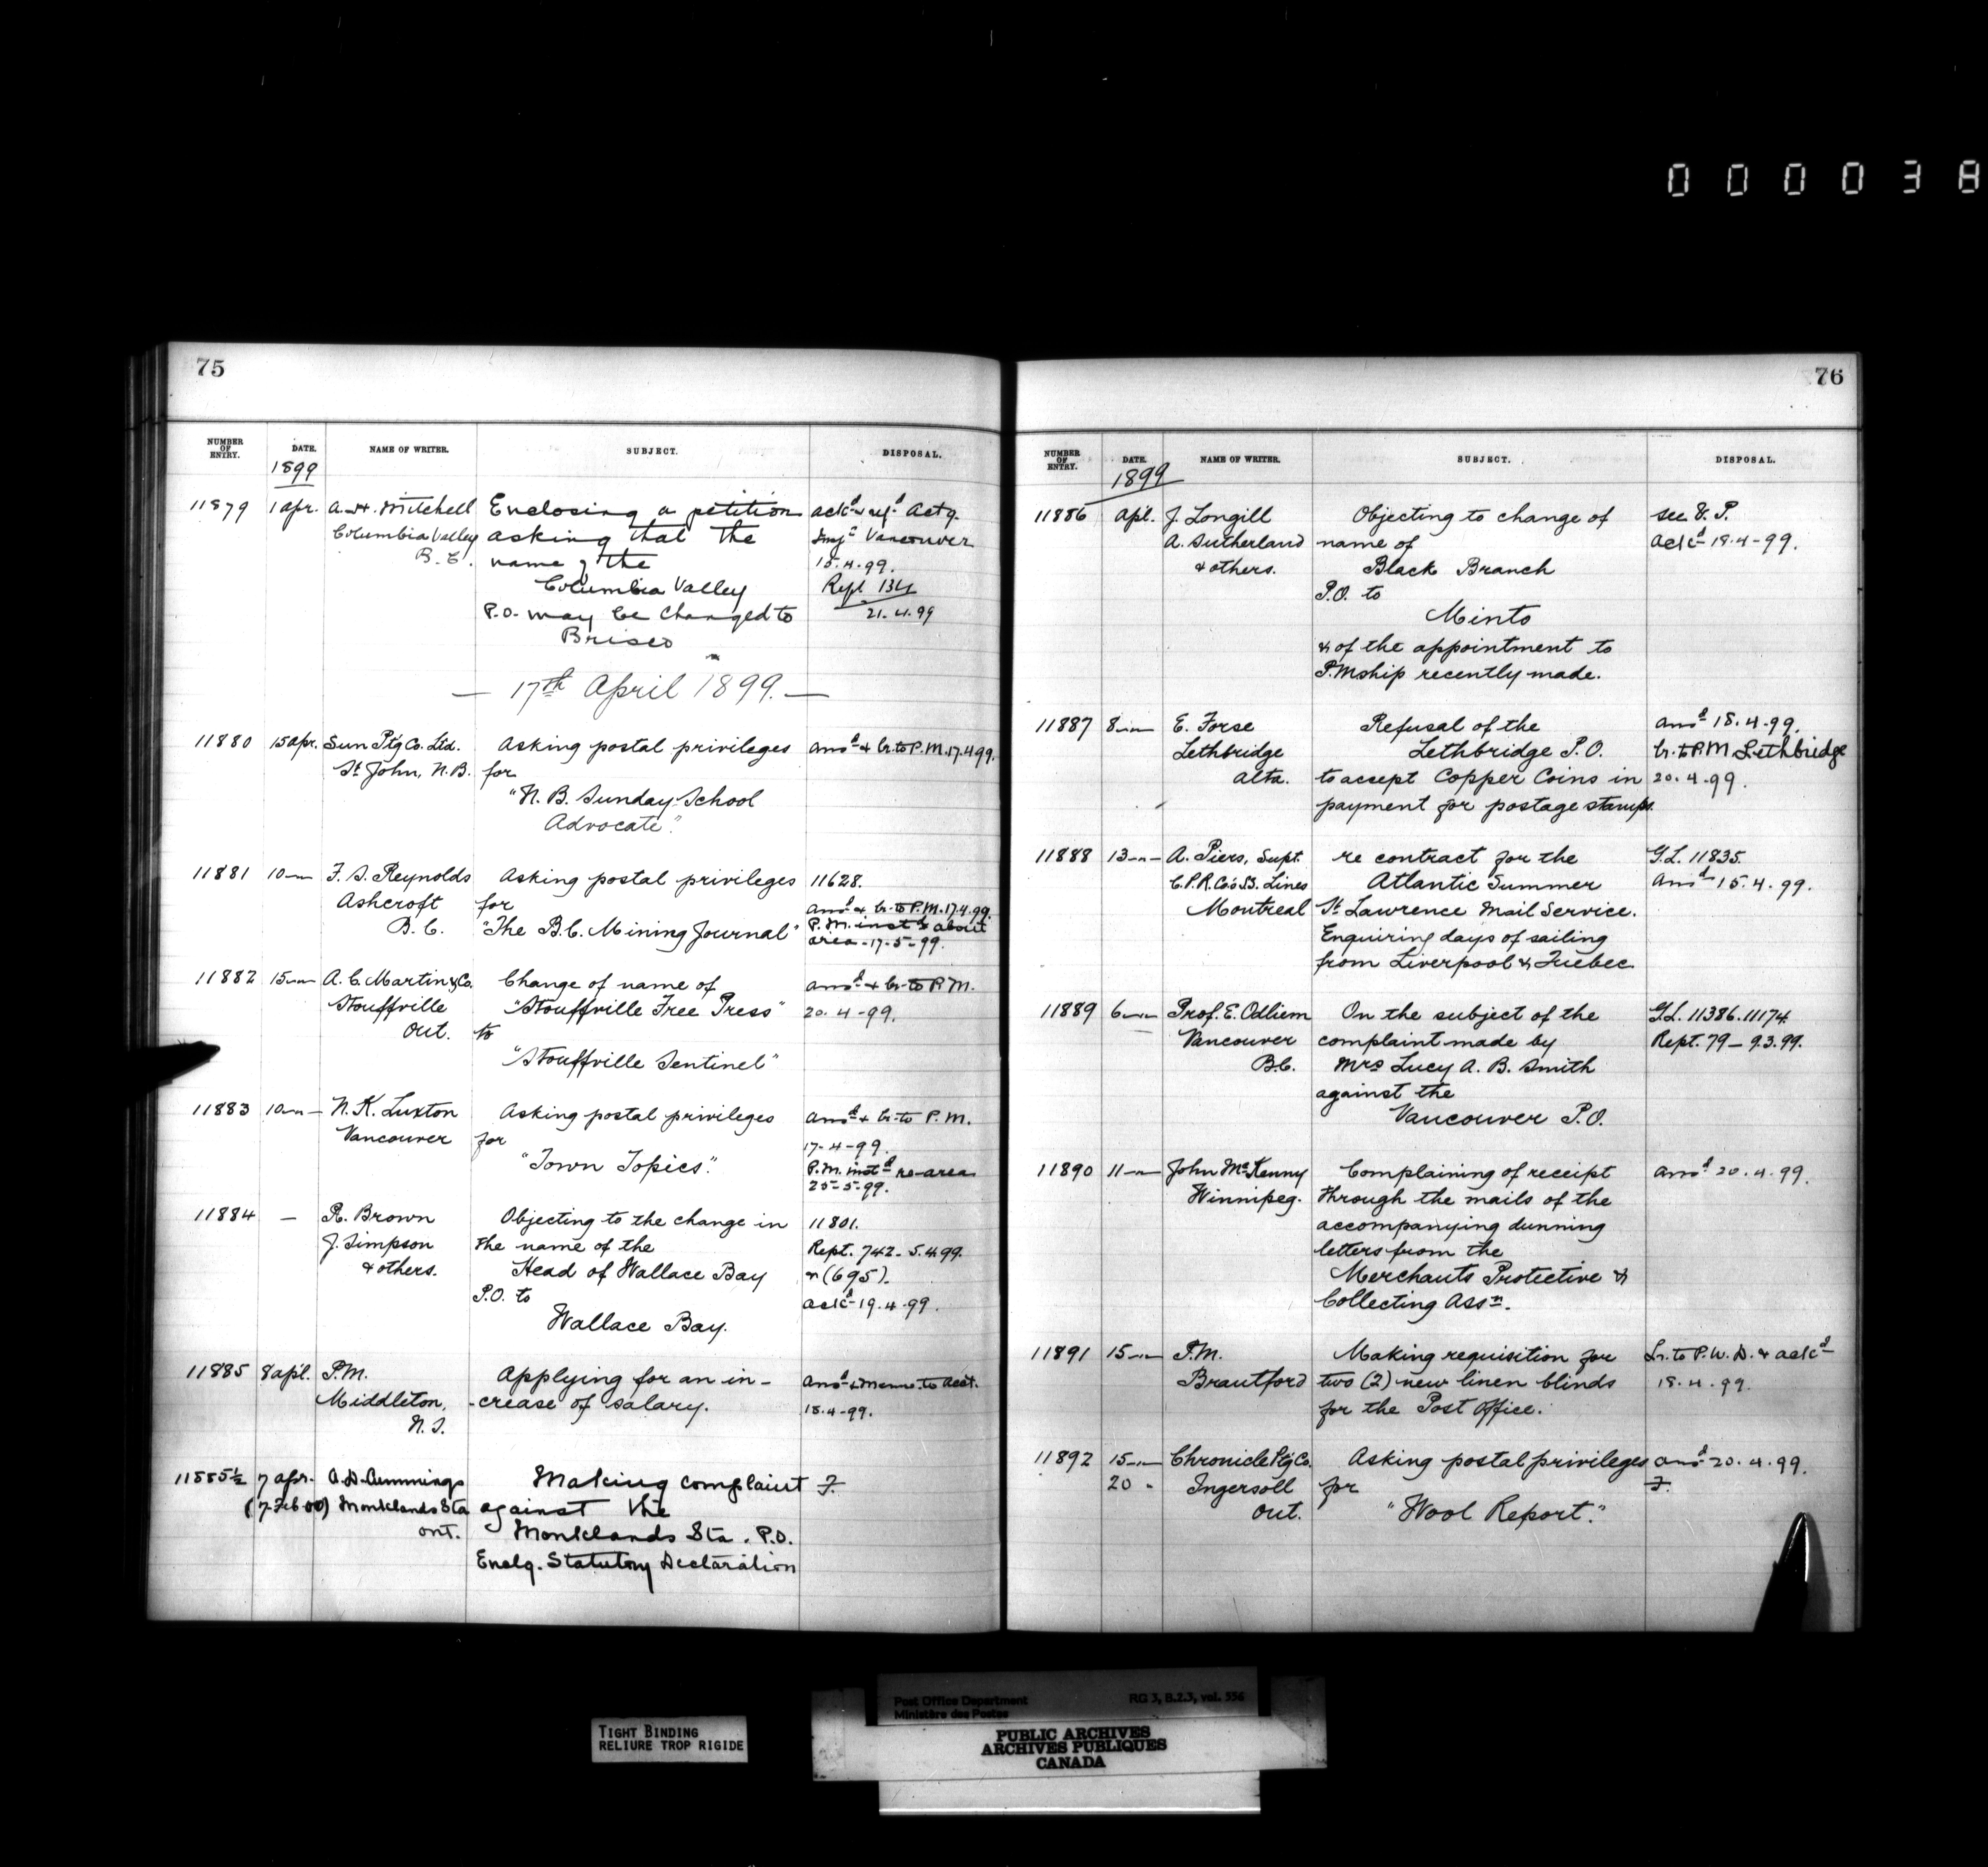 000038
75
NUMBER OF ENTRY. DATE. NAME OF WRITER. SUBJECT. DISPOSAL.
1899
11879 1 apr. A. H. Mitchell Enclosing a petition ackd & refd Actg.
Columbia Valley asking that the Vancouver
B. C. name of the 15.4.99.
Columbia Valley Rept 134
P.O. may be changed to 21.4.99
Brisco
— 17th April 1899. —
11880 15 apr. Sun Ptg Co. Ltd. Asking postal privileges ansd & lr. to P.M. 17.4.99.
St John, N.B. for
"N. B. Sunday School
Advocate".
11881 10 — F. S. Reynolds Asking postal privileges 11628.
Ashcroft for ansd & lr. to P.M. 17.4.99.
B. C. "The B.C. Mining Journal" P.M. instd about
area - 17-5-99.
11882 15 — A. C. Martin & Co. Change of name of ansd & lr. to P.M.
Stouffville "Stouffville Free Press" 20.4-99.
Ont. to
"Stouffville Sentinel"
11883 10 — N. K. Luxton Asking postal privileges ansd & lr. to P.M.
Vancouver for 17-4-99.
"Town Topics". P.M. instd re area
25-5-99.
11884 — R. Brown Objecting to the change in 11801.
J. Simpson the name of the Rept. 742 - 5.4.99.
& others. Head of Wallace Bay " (695).
P.O. to ackd 19.4.99.
Wallace Bay.
11885 8 apl. P.M. Applying for an in-
Middleton, -crease of salary. ansd & memo. to Acct.
N.S. 18.4-99.
11885½ 7 apr. A. D. Cummings Making complaint F.
(7 Feb 00) Monklands Sta against the
Ont. Monklands Sta. P.O.
Enclg. Statutory Declaration
76
NUMBER OF ENTRY. DATE. NAME OF WRITER. SUBJECT. DISPOSAL.
1899
11886 apl. J. Longill Objecting to change of see P.
A. Sutherland name of ackd 18.4-99.
& others. Black Branch
P.O. to
Minto
& of the appointment to
P.Mship recently made.
11887 8 — E. Forse Refusal of the ansd 18.4.99.
Lethbridge Lethbridge P.O. lr. to P.M Lethbridge
Alta. to accept Copper Coins in 20.4.99.
payment for postage stamps.
11888 13 — A. Piers, Supt. re contract for the G.L. 11835.
C.P.R. Co's S. Lines Atlantic Summer ansd 15.4.99.
Montreal St Lawrence Mail Service.
Enquiring days of sailing
from Liverpool & Quebec
11889 6 — Prof. E. Odlum On the subject of the G.L. 11386.11174.
Vancouver complaint made by Rept. 79 — 9.3.99.
B.C. Mrs Lucy A. B. Smith
against the
Vancouver P.O.
11890 11 — John McKenny Complaining of receipt ansd 20.4.99.
Winnipeg. through the mails of the
accompanying dunning
letters from the
Merchants Protective &
Collecting Assn.
11891 15 — P.M. Making requisition for Lr. to P.W.D. & ackd
Brantford two (2) new linen blinds 18.4.99.
for the Post Office.
11892 15 — Chronicle Ptg Co. Asking postal privileges ansd 20.4.99.
20 " Ingersoll for F.
Ont. "Wool Report."
TIGHT BINDING
RELIURE TROP RIGIDE
Post Office Department RG 3, B.2.3, vol. 556
Ministère des Postes
PUBLIC ARCHIVES
ARCHIVES PUBLIQUES
CANADA